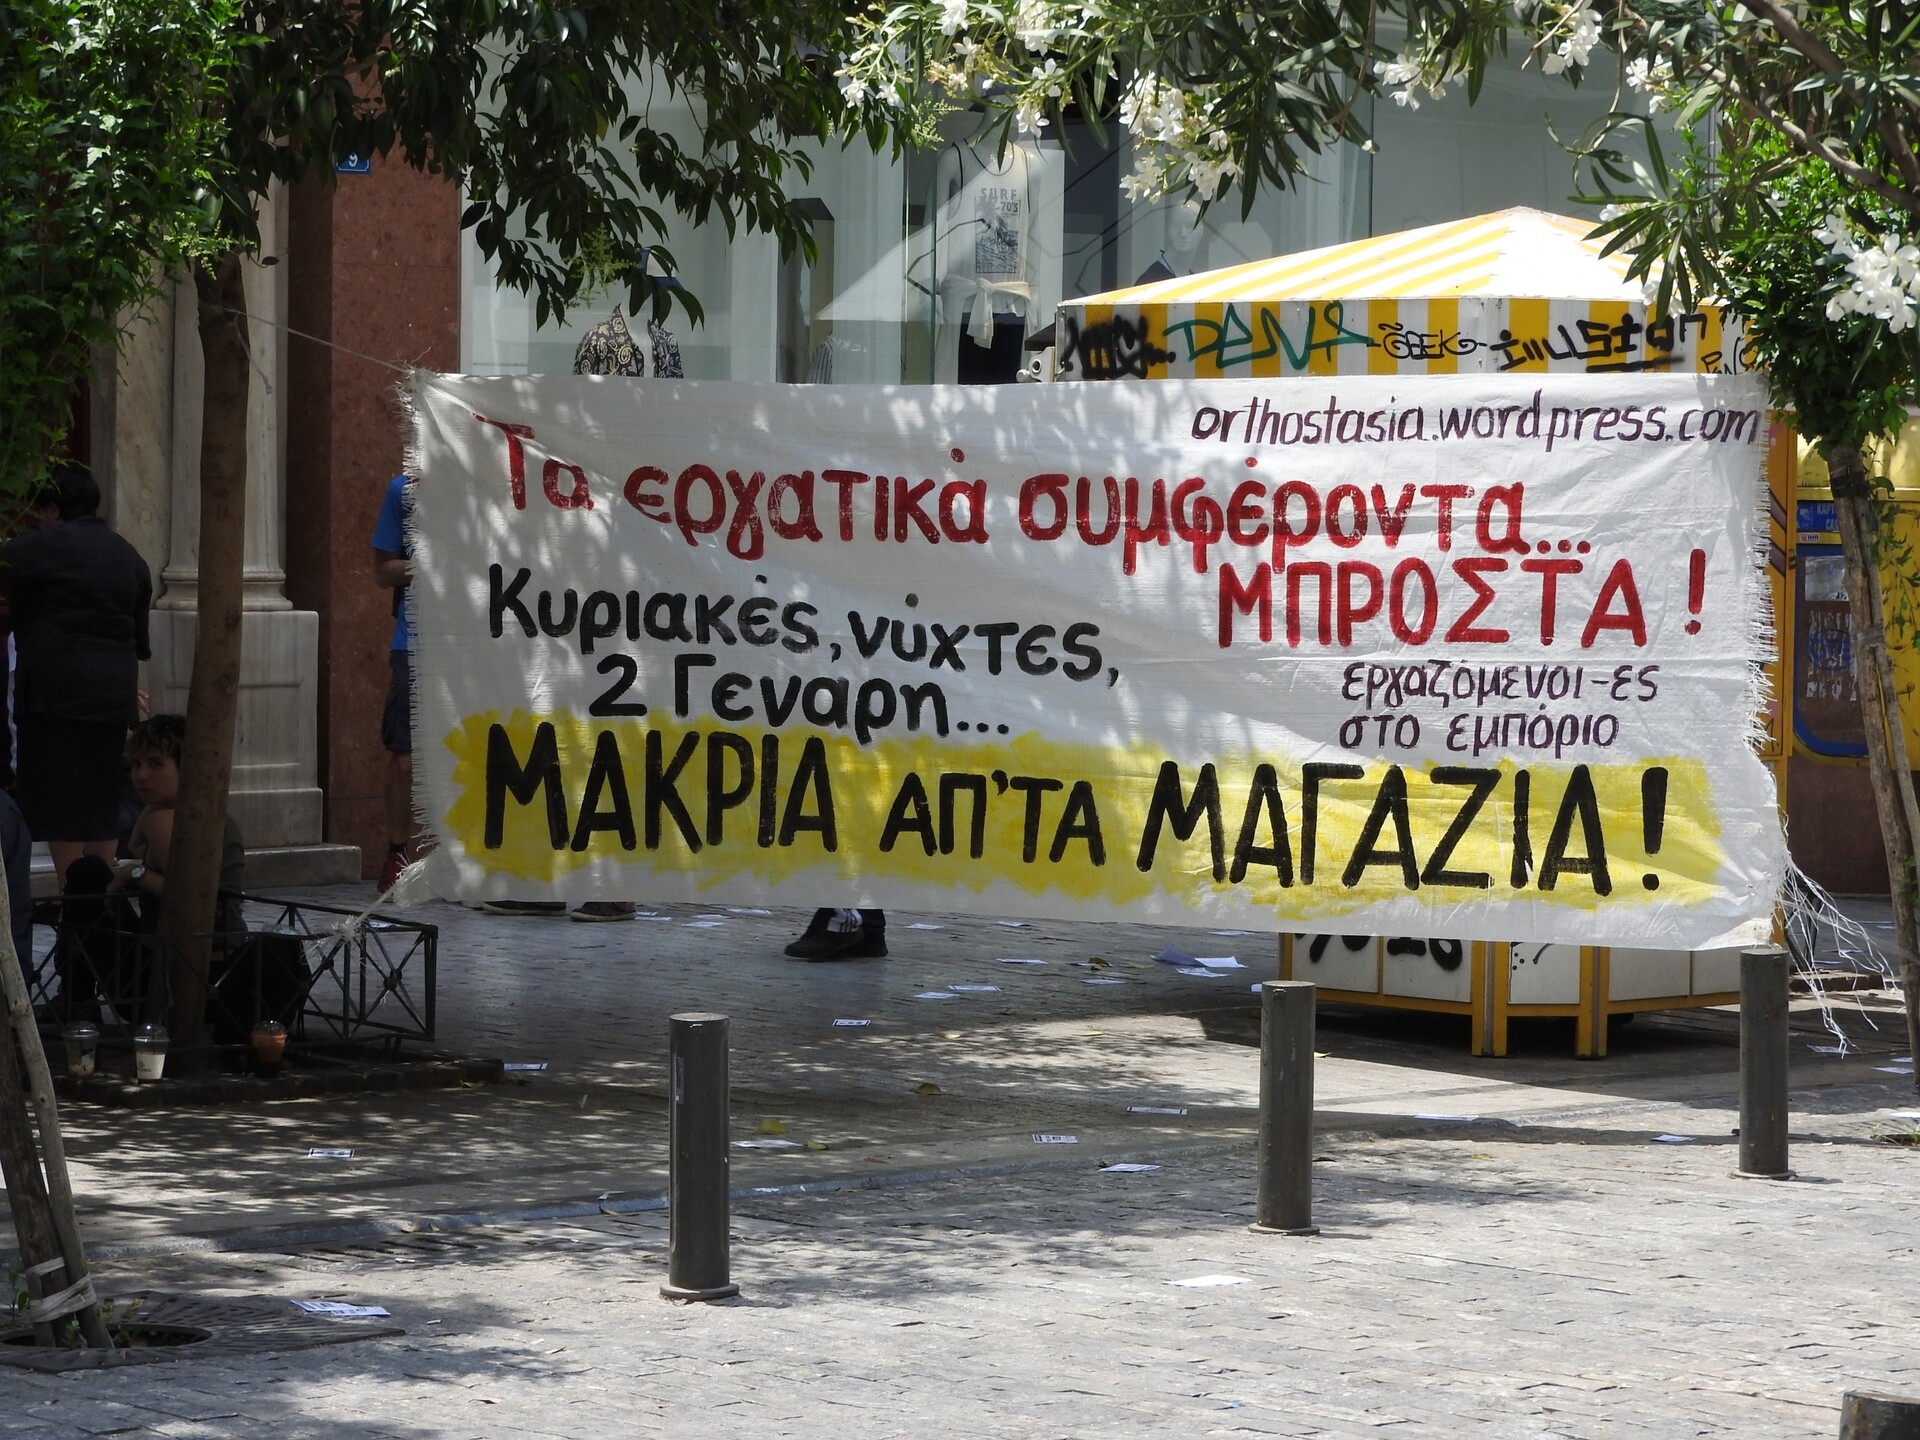 9
SURF
70'S
DENS
GEEK
illusion
orthostasia.wordpress.com
Τα εργατικά συμφέροντα...
ΜΠΡΟΣΤΑ!
Κυριακές, νύχτες,
2 Γενάρη...
εργαζόμενοι-ες
στο εμπόριο
ΜΑΚΡΙΑ ΑΠ'ΤΑ ΜΑΓΑΖΙΑ!